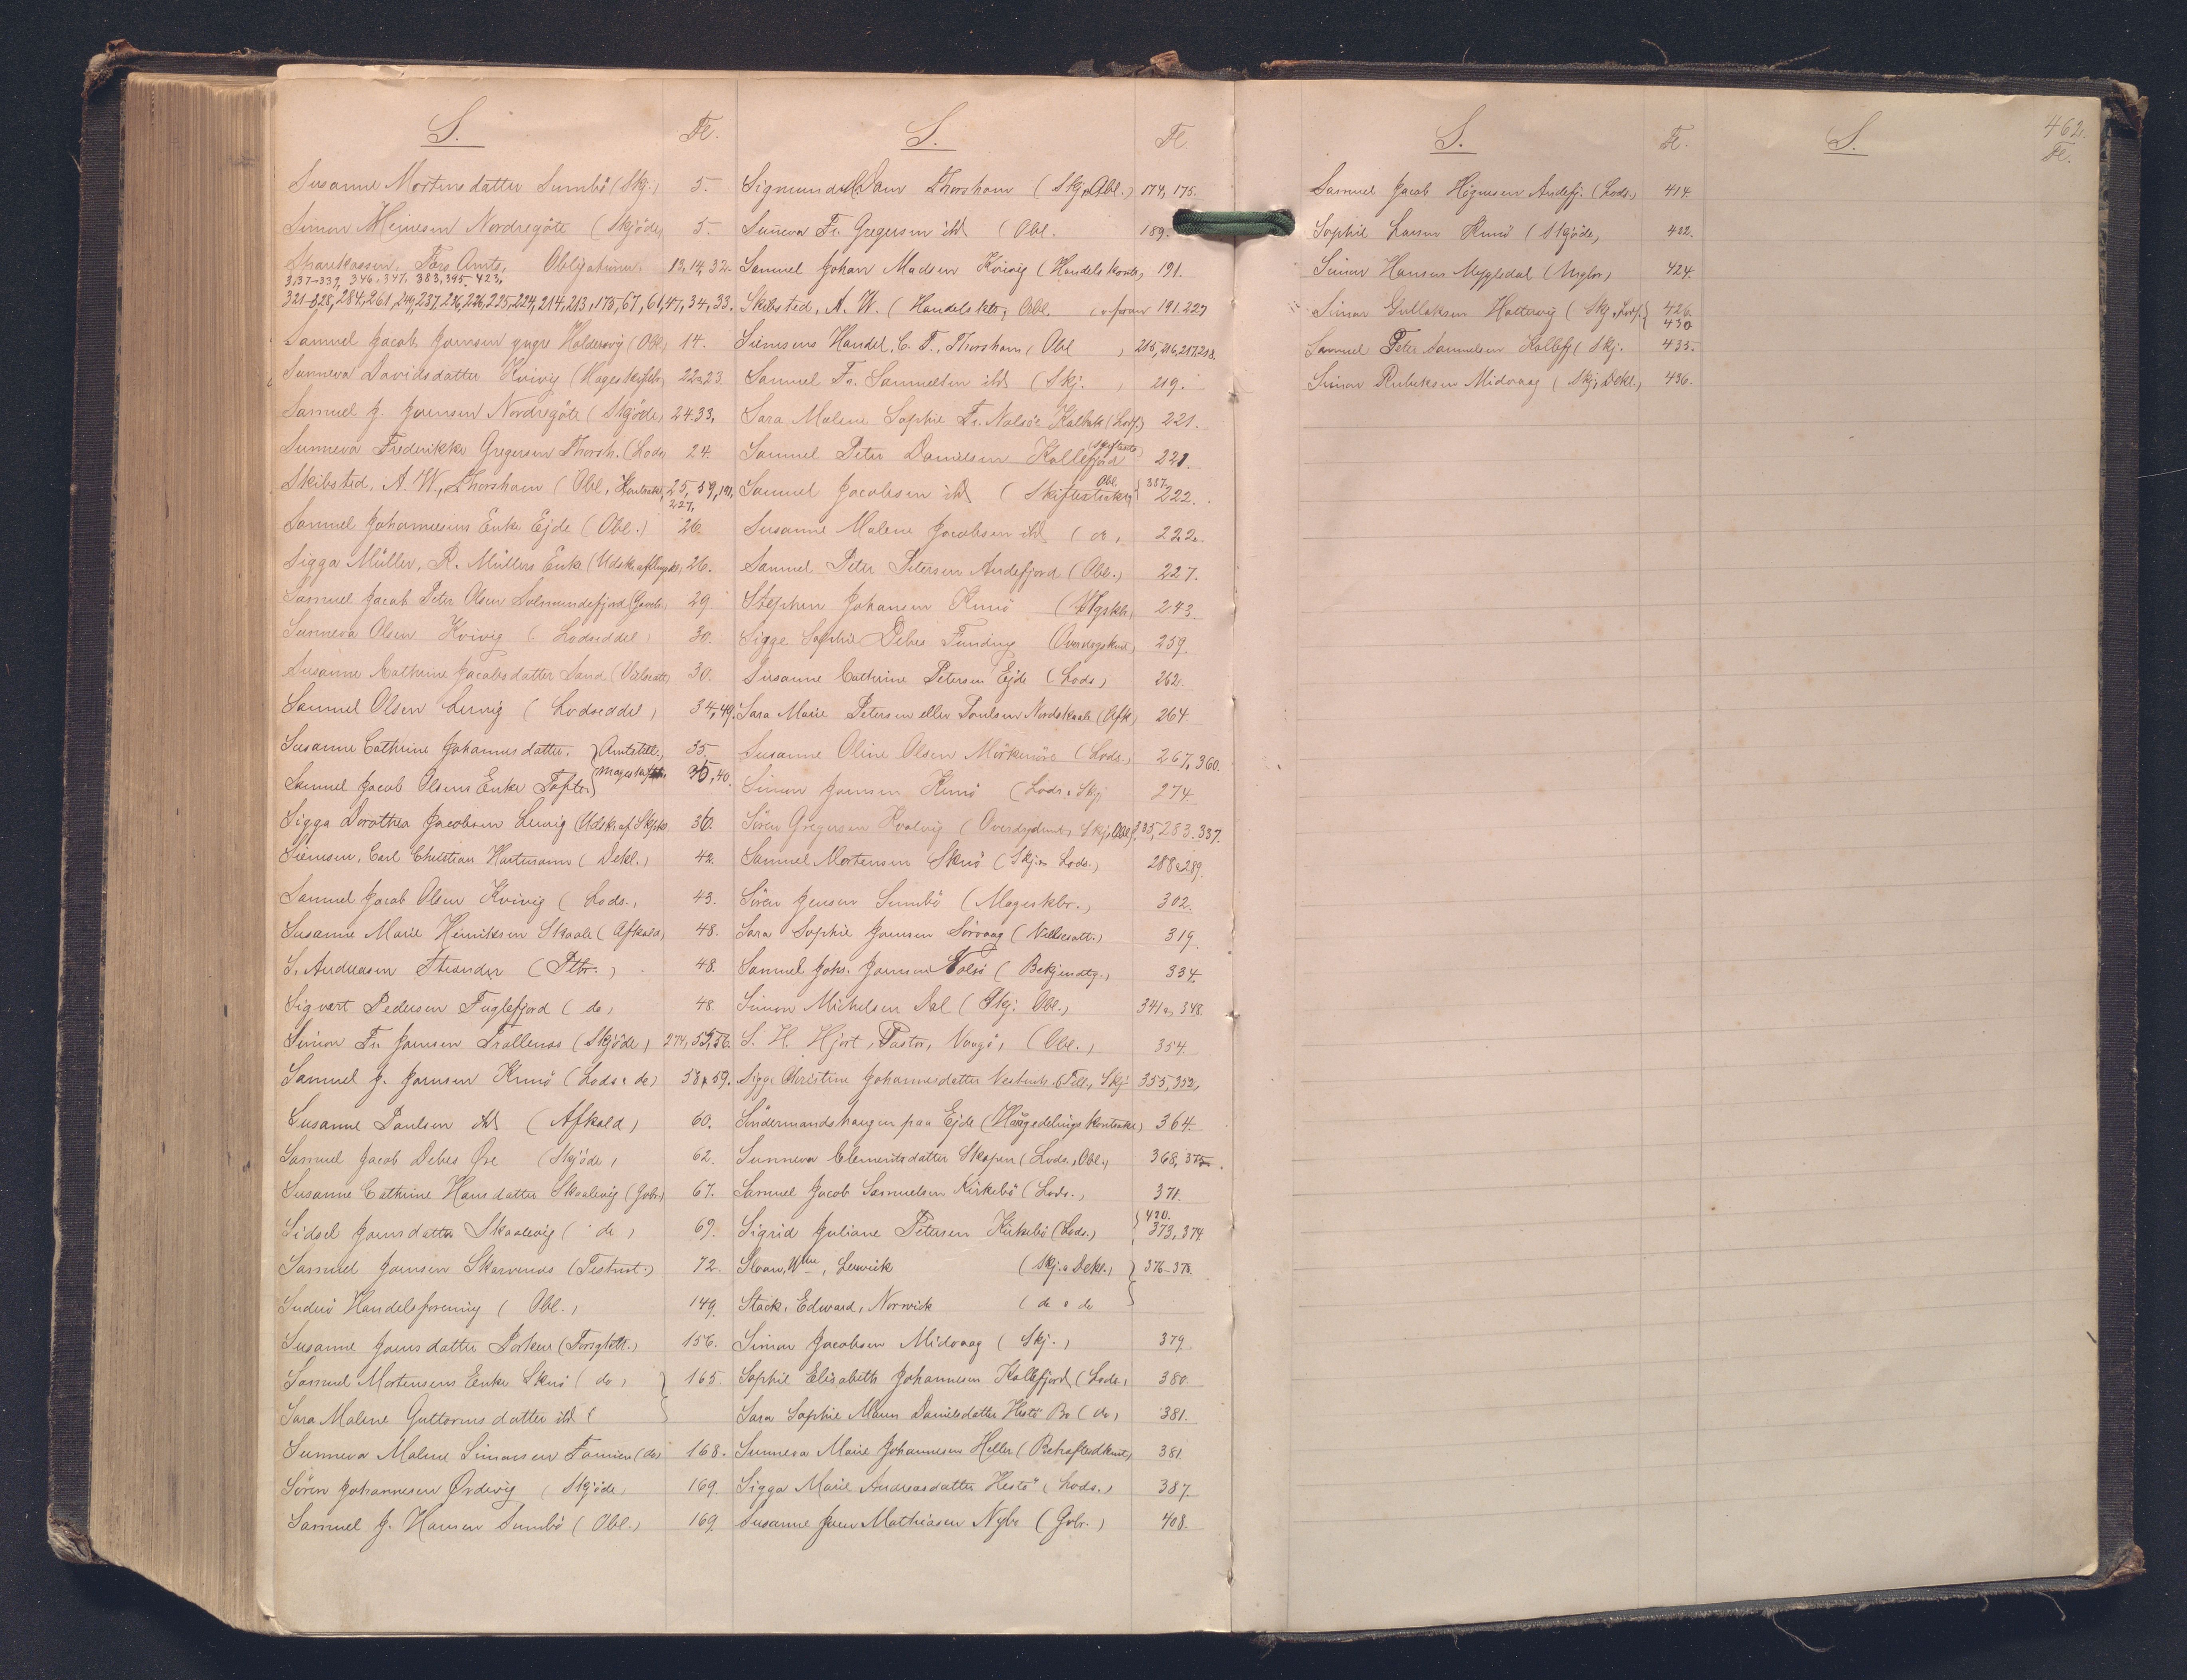 S. Fl.
Susanne Mortensdatter Sumbö (Skj.) 5.
Simon Heinesen Nordregöte (Skjöde) 5.
Sparekassen, Færø Amts, Obligationer. 13, 14, 32.
337-339, 346, 347, 383, 395, 423,
321-328, 284, 261, 237, 226, 225, 224, 214, 213, 175, 67, 61, 47, 34, 33.
Samuel Jacob Joensen yngre Haldersvig (Obl.) 14.
Sunneva Davidsdatter Kvivig (Mageskiftebr.) 22 a 23.
Samuel J. Joensen Nordregöte (Skjöde) 24. 33.
Sunneva Frederikke Gregersen Thorsh. (Lods.) 24.
Skibsted, A. W., Thorshavn (Obl., Kontrakt) 25, 59, 191,
227,
Samuel Johannesens Enke Ejde (Obl.) 26.
Sigga Müller, R. Müllers Enke (Udsk. af) 26.
Samuel Jacob Peter Olsen Solmundefjord (Gaveb.) 29.
Sunneva Olsen Kvivig (Lodseddel) 30.
Susanne Cathrine Jacobsdatter Sand (Vielsesatt.) 30.
Samuel Olsen Lervig (Lodseddel) 34, 49.
Susanne Cathrine Johannesdatter. } Amtstill., 35
Samuel Jacob Olsens Enke Tofte } Mageskiftebr. 35, 40.
Sigga Dorothea Jacobsen Lervig (Udsk. af Skjøde) 36.
Siemsen, Carl Christian Hartmann (Dekl.) 42.
Samuel Jacob Olsen Kvivig (Lods.) 43.
Susanne Marie Heinriksen Skaale (Afkald) 48.
S. Andreasen Strender (Pltr.) 48.
Sigvart Pedersen Fuglefjord (do) 48.
Simon Fr. Joensen Trallenæs (Skjöde) 274, 55, 56.
Samuel J. Joensen Kunö (Lods. & do) 58 & 59.
Susanne Paulsen ibd (Afkald) 60.
Samuel Jacob Debes Øre (Skjöde) 62.
Susanne Cathrine Hansdatter Skaalevig (Gvbr.) 67.
Sidsel Joensdatter Skaalevig (do) 69.
Samuel Joensen Skarvenæs (Testmt.) 72.
Suderö Handelsforening (Obl.) 149.
Susanne Joensdatter Porkere (Forsgtatt.) 156.
Samuel Mortensens Enke Skuö (do) } 165.
Sara Malene Guttormsdatter ibd ( }
Sunneva Malene Simonsen Famien (do) 168.
Sören Johannesen Ørdevig (Skjöde) 169.
Samuel J. Hansen Sumbö (Obl.) 169.
S. Fl.
Sigmund Dam Thorshavn (Skj. Obl.) 174, 175.
Sunneva Fr. Gregersen ibd (Obl. 189.
Samuel Johan Madsen Kvivig (Handelskontr.) 191.
Skibsted, A. W. (Handelsktr, Obl. 191. 227
Siemsens Handel, C. F., Thorshavn (Obl ) 215, 216, 217, 218.
Samuel Fr. Samuelsen ibd (Skj. ) 219.
Sara Malene Sophie Fr. Nolsöe Kalbak (Lods.) 221.
Samuel Peter Danielsen Kollefjord 221.
Samuel Jacobsen ibd (Obl. Skifteextrakt) } 387. 222.
Susanne Malene Jacobsen ibd (do) 222.
Samuel Peter Petersen Andefjord (Obl.) 227.
Stephen Johansen Kunö 243.
Sigge Sophie Debes Funding 259.
Susanne Cathrine Petersen Ejde (Lods) 262.
Sara Marie Petersen eller Poulsen Nordskaale (Afk) 264
Susanne Oline Olsen Mörkenöre (Lods.) 267, 360.
Simon Joensen Kunö (Lods. & Skj. 274.
Sören Gregersen Kvalvig (Skj. Obl.) 335, 283. 337.
Samuel Mortensen Skuö (Skj. & Lods.) 288 & 289.
Sören Jensen Sumbö (Mageskbr.) 302.
Sara Sophie Joensen Sörvaag (Vielsesatt.) 319.
Samuel Johs. Joensen Nolsö (Bekjendtg.) 334.
Simon Michelsen Dal (Skj. Obl.) 341 & 348.
S. H. Hjort, Pastor, Vaagö, (Obl.) 354.
Sigge Christine Johannesdatter Vestmh. (Till., Skj. 355, 352,
Söndermandshaugen paa Ejde (Haugedelingskontrakt) 364.
Sunneva Clementsdatter Skopen (Lods., Obl.) 368, 375.
Samuel Jacob Samuelsen Kirkebö (Lods.) 371.
Sigrid Juliane Petersen Kirkebö (Lods.) { 420. 373, 374
Sloan, Wm, Lerwick (Skj. & Dekl.) } 376-378.
Stack, Edward, Norwick (do & do }
Simon Jacobsen Midvaag (Skj.) 379.
Sophie Elisabeth Johannesen Kollefjord (Lods.) 380.
Sara Sophie Maren Danielsdatter Hestö Bo (do) 381.
Sunneva Marie Johannesen Heller 381.
Sigga Marie Andreasdatter Hestö (Lods.) 387.
Susanne Joen Mathiasen Nybo (Gvbr.) 408.
S. Fl.
Samuel Jacob Högnesen Andefj. (Lods.) 414.
Sophie Larsen Kunö (Skjöde) 422.
Simon Hansen Mygledal 424.
Simon Gullaksen Hattervig (Skj., Lods.) } 426. 430
Samuel Peter Samuelsen Kollefj (Skj. 435.
Simon Rubeksen Midvaag (Skj., Dekl.) 436.
S. 462.
Fl.